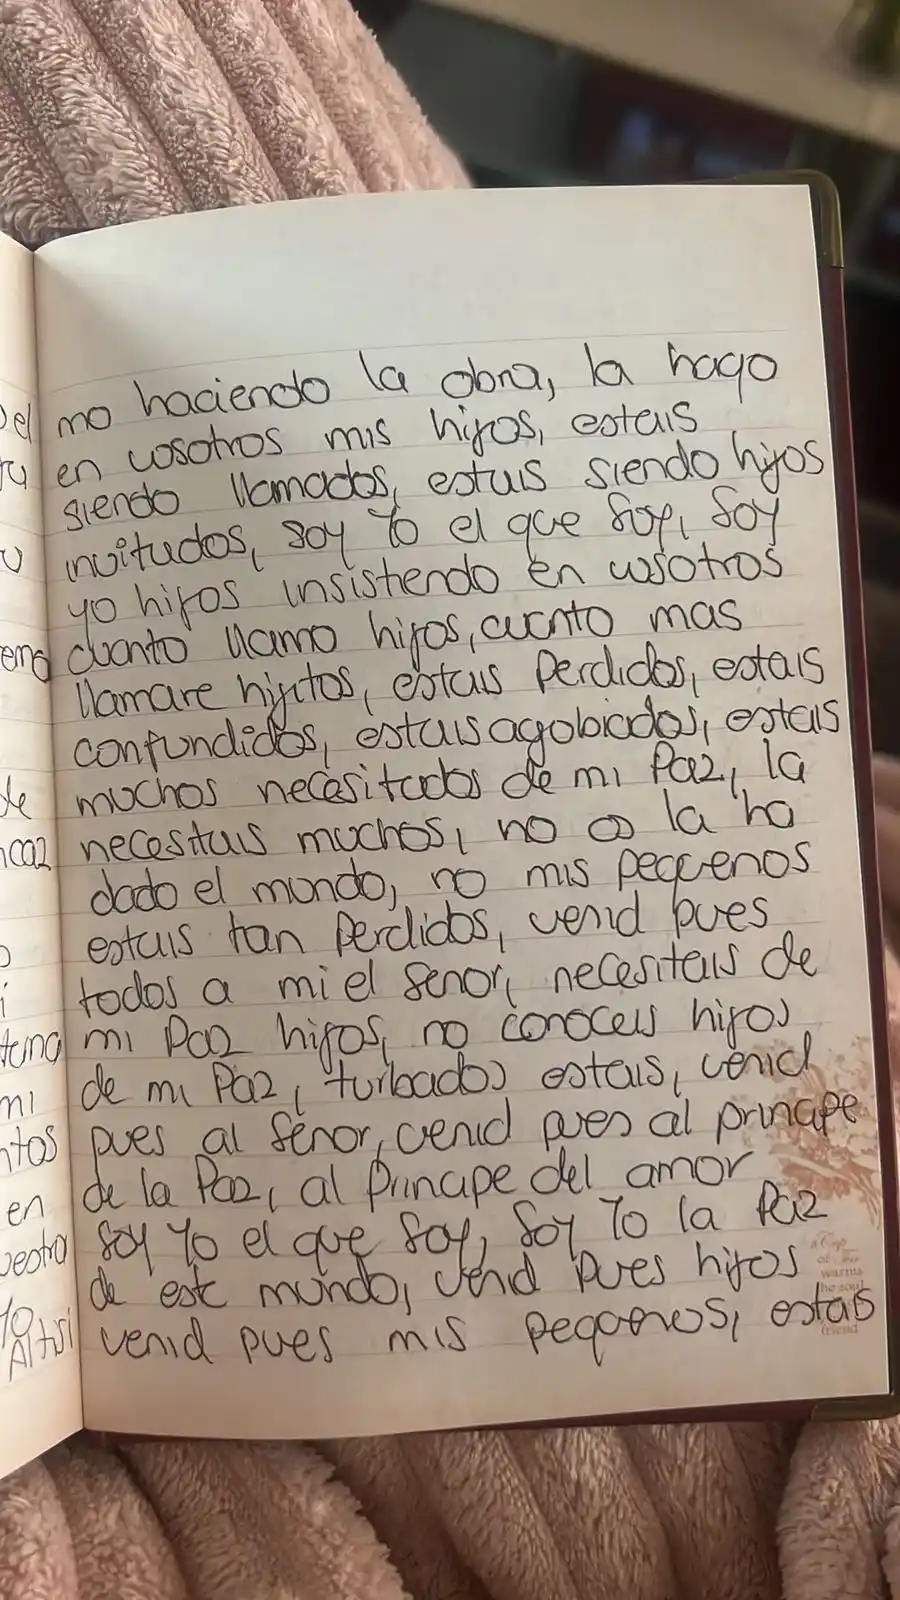 mo haciendo la obra, la hago
en vosotros mis hijos, estais
siendo llamados, estais siendo hijos
invitados, soy Yo el que Soy, Soy
yo hijos insistiendo en vosotros
cuanto llamo hijos, cuanto mas
llamare hijitos, estais perdidos, estais
confundidos, estais agobiados, estais
muchos necesitados de mi Paz, la
necesitais muchos, no os la ha
dado el mundo, no mis pequenos
estais tan perdidos, venid pues
todos a mi el Senor, necesitais de
mi Paz hijos, no conoceis hijos
de mi Paz, turbados estais, venid
pues al Senor, venid pues al principe
de la Paz, al Principe del amor
Soy Yo el que Soy, Soy Yo la Paz
de este mundo, venid pues hijos
venid pues mis pequenos, estais
a Cup
of Tea
warms
the soul
friend
el
ema
de
caz
i
tuna
mi
ntos
en
uestra
Yo